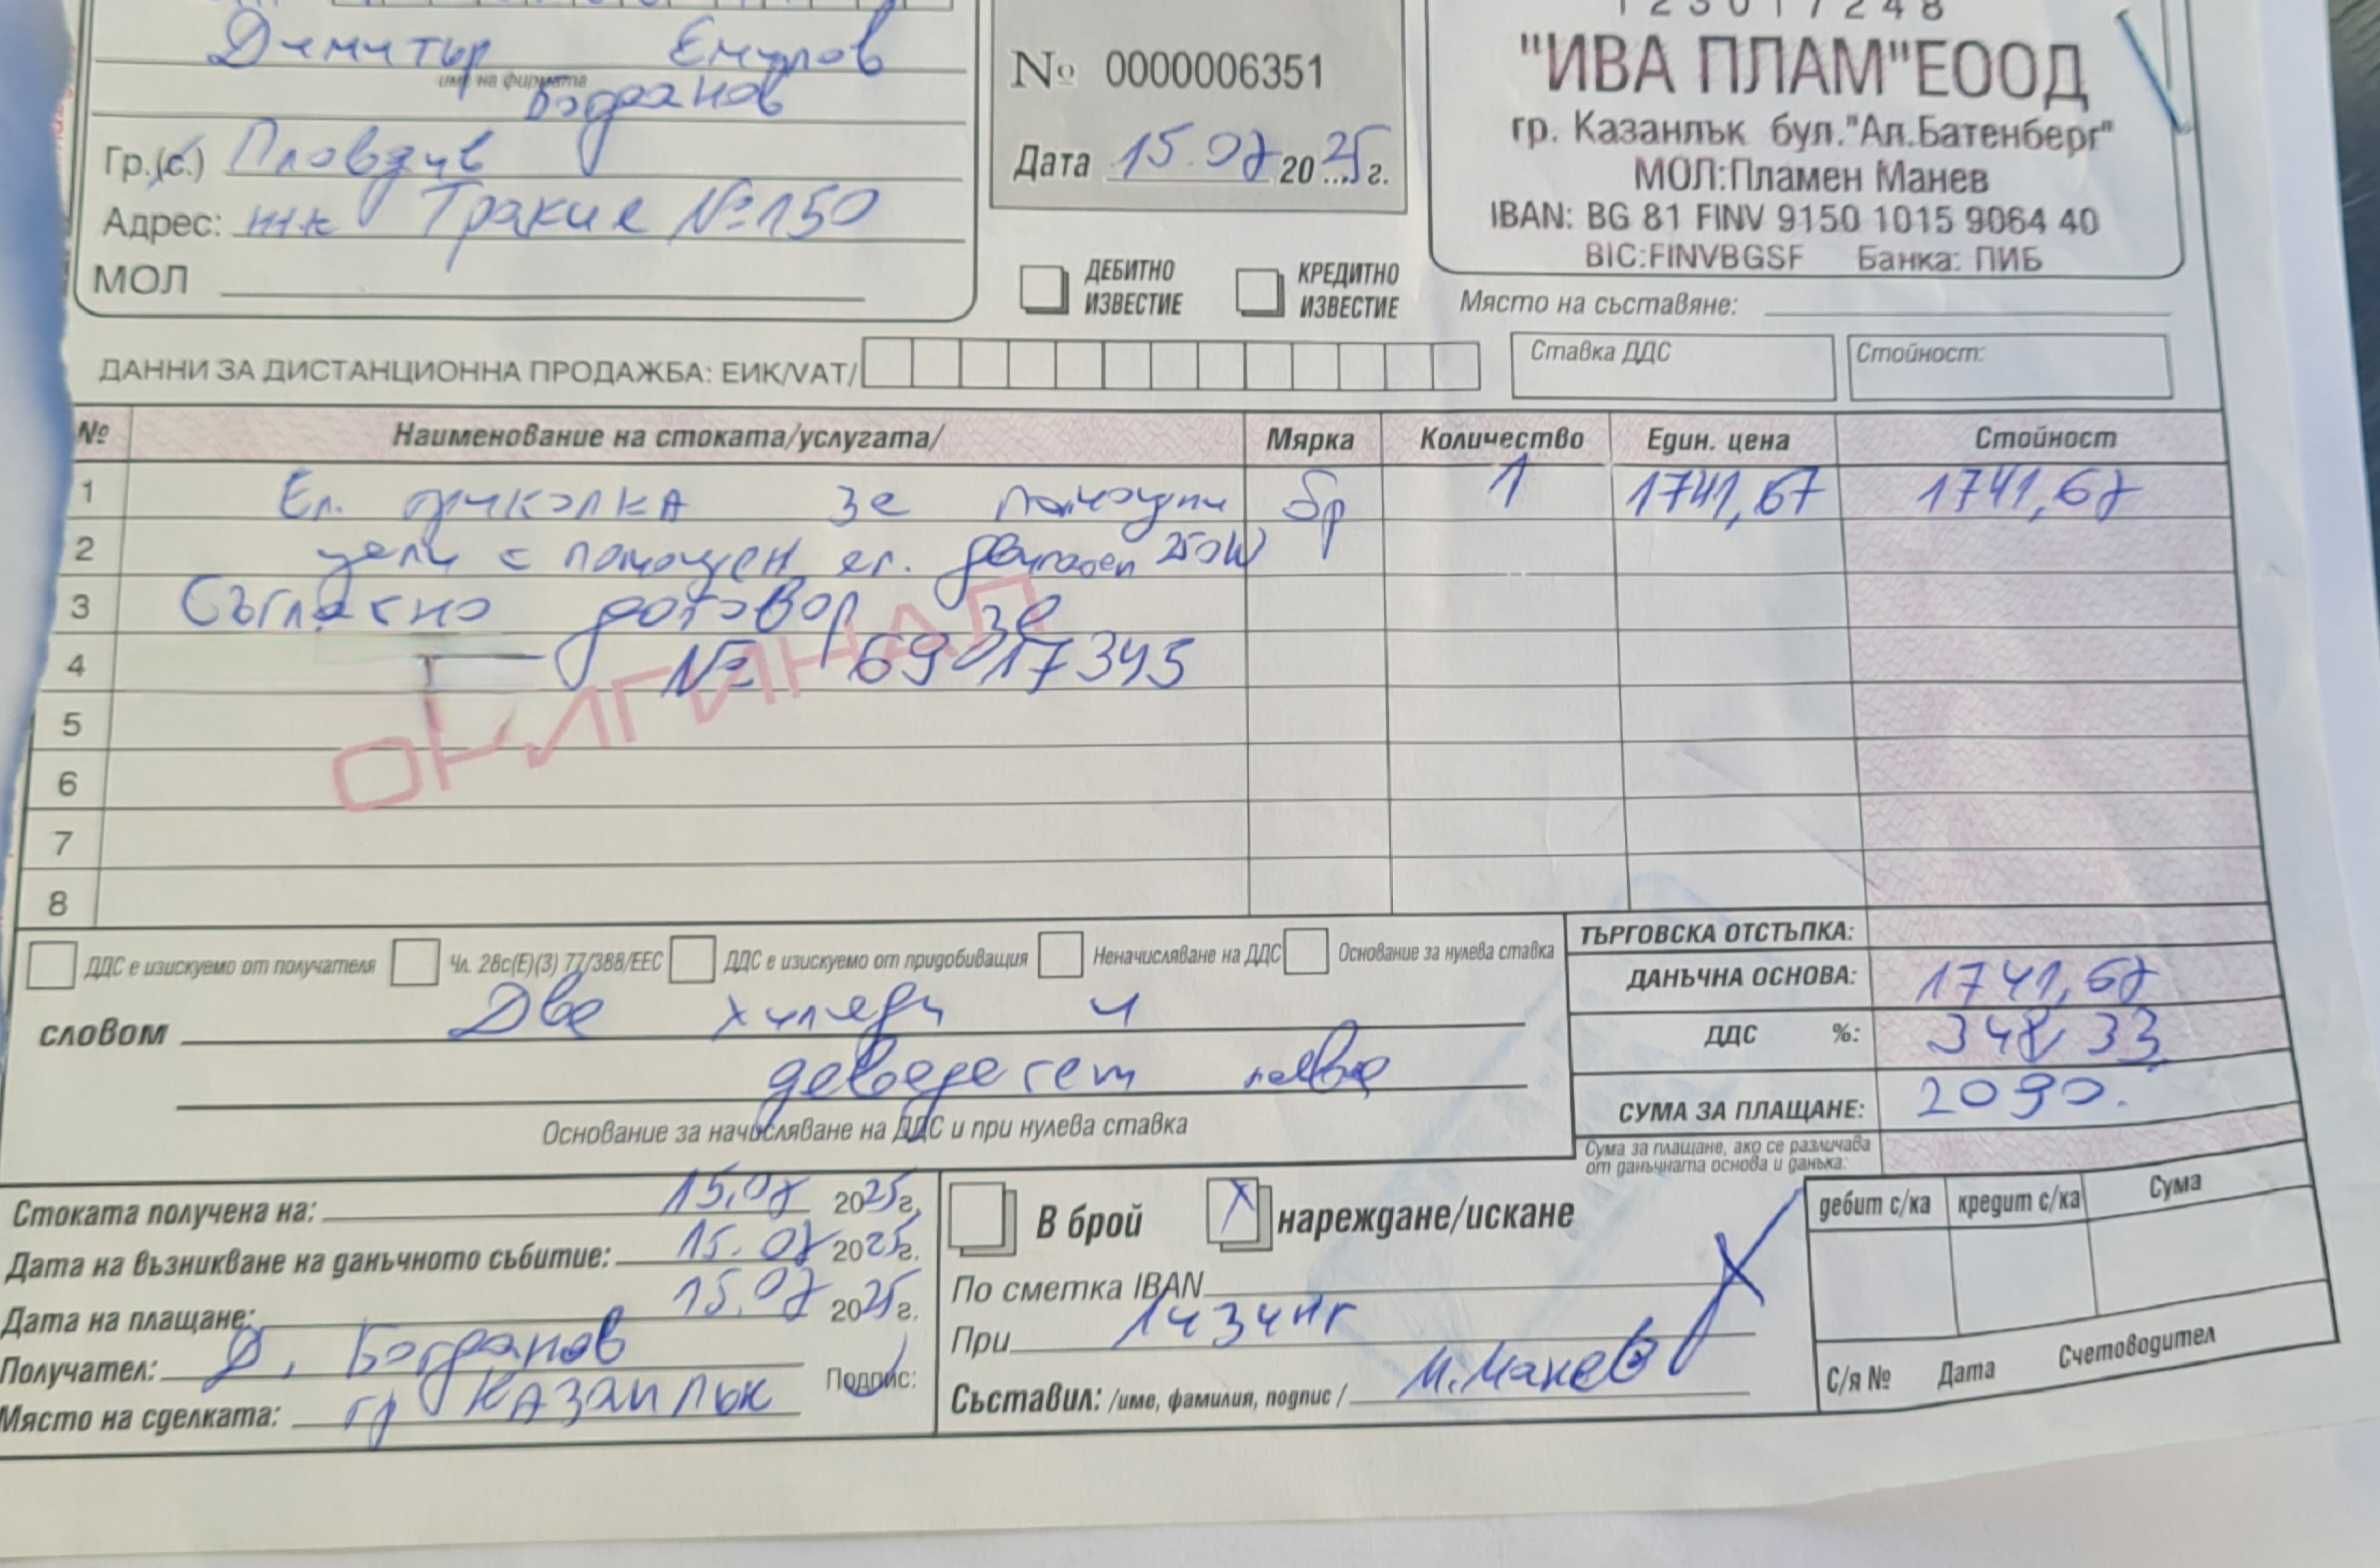 123017248
Димитър Емилов
име на фирмата
Богданов
№ 0000006351
"ИВА ПЛАМ"ЕООД
гр. Казанлък бул."Ал.Батенберг"
МОЛ:Пламен Манев
IBAN: BG 81 FINV 9150 1015 9064 40
BIC:FINVBGSF Банка: ПИБ
Гр.(с.) Пловдив
Дата 15.07 2025 г.
Адрес: жк Тракия №150
МОЛ
ДЕБИТНО ИЗВЕСТИЕ
КРЕДИТНО ИЗВЕСТИЕ
Място на съставяне:
ДАННИ ЗА ДИСТАНЦИОННА ПРОДАЖБА: ЕИК/VAT/
Ставка ДДС
Стойност:
№ Наименование на стоката/услугата/ Мярка Количество Един. цена Стойност
1 Ел. триколка за помощни бр 1 1741,67 1741,67
2 цели с помощен ел. двигател 250W
3 Съгласно договор за
4 № 69017345
ОРИГИНАЛ
5
6
7
8
ДДС е изискуемо от получателя
Чл. 28c(E)(3) 77/388/EEC
ДДС е изискуемо от придобиващия
Неначисляване на ДДС
Основание за нулева ставка
ТЪРГОВСКА ОТСТЪПКА:
ДАНЪЧНА ОСНОВА: 1741,67
словом Две хиляди и
ДДС %: 348,33
деведесет лева
СУМА ЗА ПЛАЩАНЕ: 2090.
Основание за начисляване на ДДС и при нулева ставка
Сума за плащане, ако се различава
от данъчната основа и данъка:
Стоката получена на: 15.07 2025г.
Дата на възникване на данъчното събитие: 15.07 2025г.
Дата на плащане: 15.07 2025г.
Получател: Д. Богданов Подпис:
Място на сделката: гр Казанлък
В брой
X нареждане/искане
По сметка IBAN
При
Съставил: /име, фамилия, подпис / М.Манев
дебит с/ка кредит с/ка Сума
С/я № Дата Счетоводител